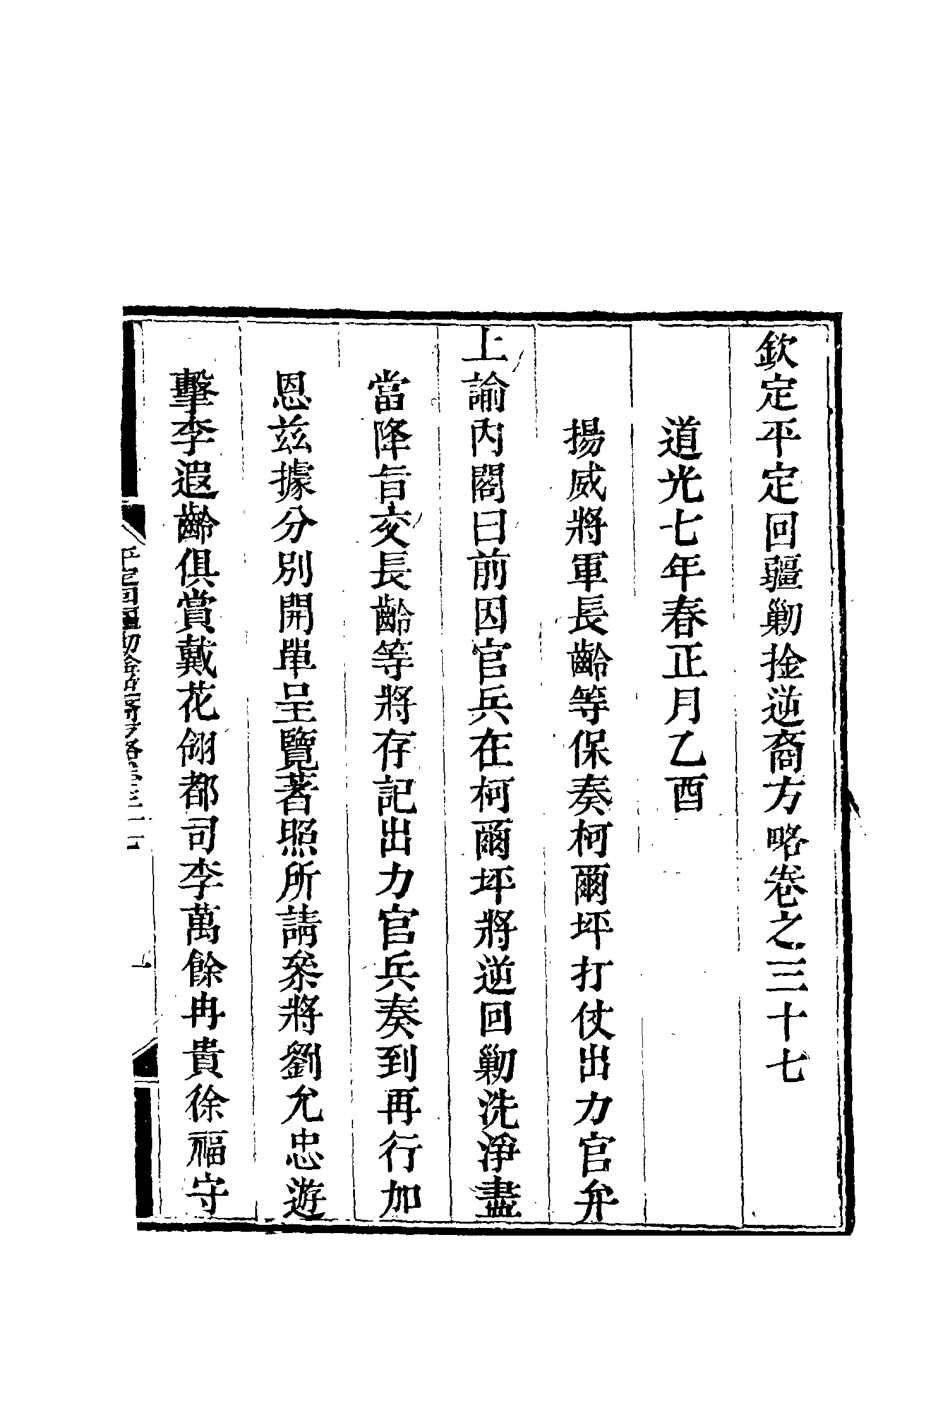 欽定平定回疆勦捡逆裔方略卷之三十七
道光七年春正月乙酉
揚威將軍長齡等保奏柯爾坪打仗出力官弁
上諭內閣曰前因官兵在柯爾坪將逆回勦洗淨盡
當降旨交長齡等將存記出力官兵奏到再行加
恩茲據分別開單呈覽著照所請叅將劉允忠遊
擊李遐齡俱賞戴花翎都司李萬餘冉貴徐福守
平定回疆勦捡逆裔方略卷三十七 一